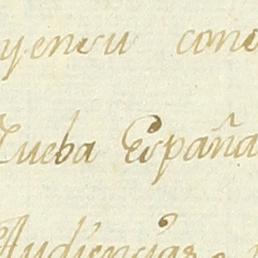 y en su cono
Nueba España
Audiencias